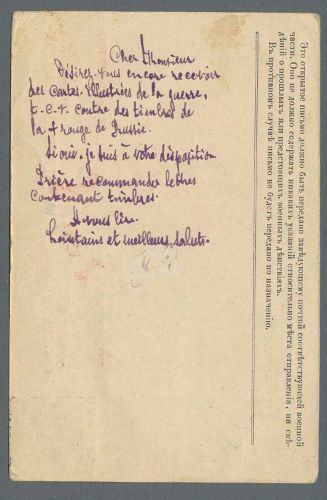 Cher Monsieur
Désirez-vous encore recevoir
des cartes illustrées de la guerre,
t.c.v. contre des timbres de
la + rouge de Russie.
Si oui, je suis à votre disposition
Prière recommander lettres
contenant timbres.
A vous lire.
Lointains et meilleurs saluts.
Это открытое письмо должно быть передано завѣдующему почтой соотвѣтствующей военной
части. Оно не должно содержать никакихъ указаній относительно мѣста отправленія, ни свѣ-
дѣній о прошлыхъ или предстоящихъ военныхъ дѣйствіяхъ.
Въ противномъ случаѣ письмо не будетъ передано по назначенію.